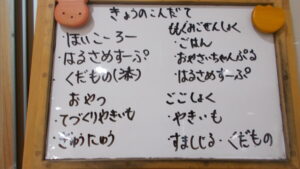 きょうのこんだて
・ほいこーろー
・はるさめすーぷ
くだもの()
おやつ
・てづくりやきいも
・ぎゅうにゅう
・ごはん
・おやさいちゃんぷる
・はるさめすーぷ
ごごしょく
・やきいも
・すましじる・くだもの